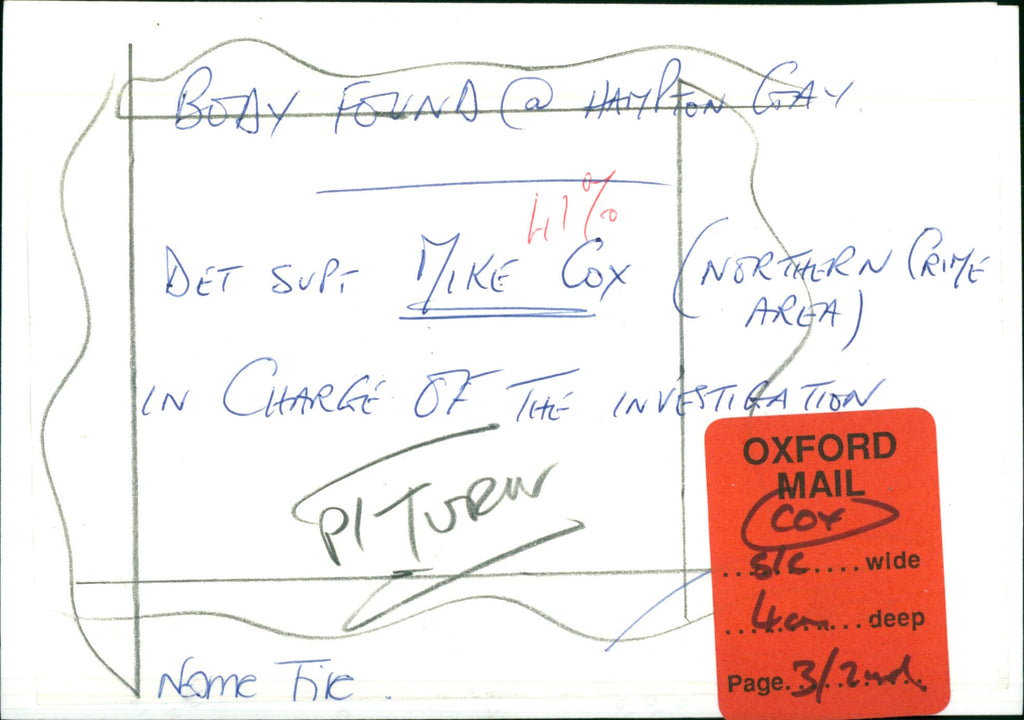 BODY FOUND @ HAMPTON GAY.
41%
DET SUPT MIKE COX (NORTHERN CRIME
AREA)
IN CHARGE OF THE INVESTIGATION
P/ TURN
OXFORD
MAIL
COX
s/c wide
4cm deep
Page. 3/2nd
Name File.